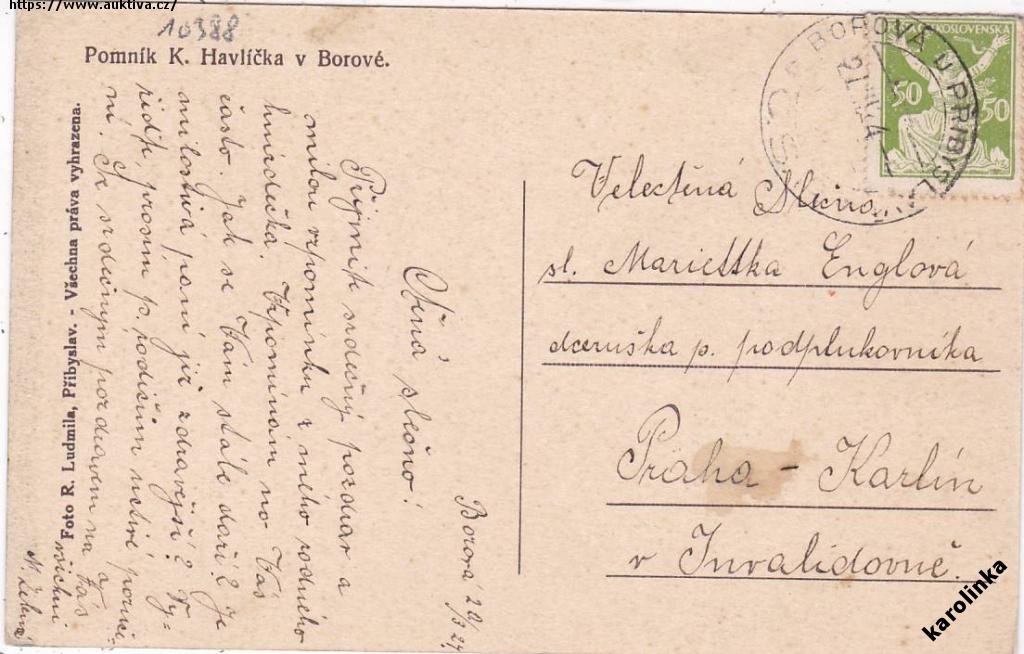 https://www.auktiva.cz/
10388
Pomník K. Havlíčka v Borové.
Foto R. Ludmila, Přibyslav. - Všechna práva vyhrazena.
BOROVÁ U PŘIBYSL
ČESKOSLOVENSKA
50 50
Velectěná Slečna
sl. Mariettka Englová
dceruška p. podplukovníka
Praha - Karlín
v Invalidovně.
Borová 20/3 24
Ctěná slečno!
Přijměte srdečný pozdrav a
milou vzpomínku z mého rodného
hnízdečka. Vzpomínám na Vás
často. Jak se Vám stále daří? Je
milostivá paní již zdravější? Vy-
řiďte, prosím p. rodičům uctivé poruče-
ní. Se srdečným pozdravem na Vás
všechny
karolinka